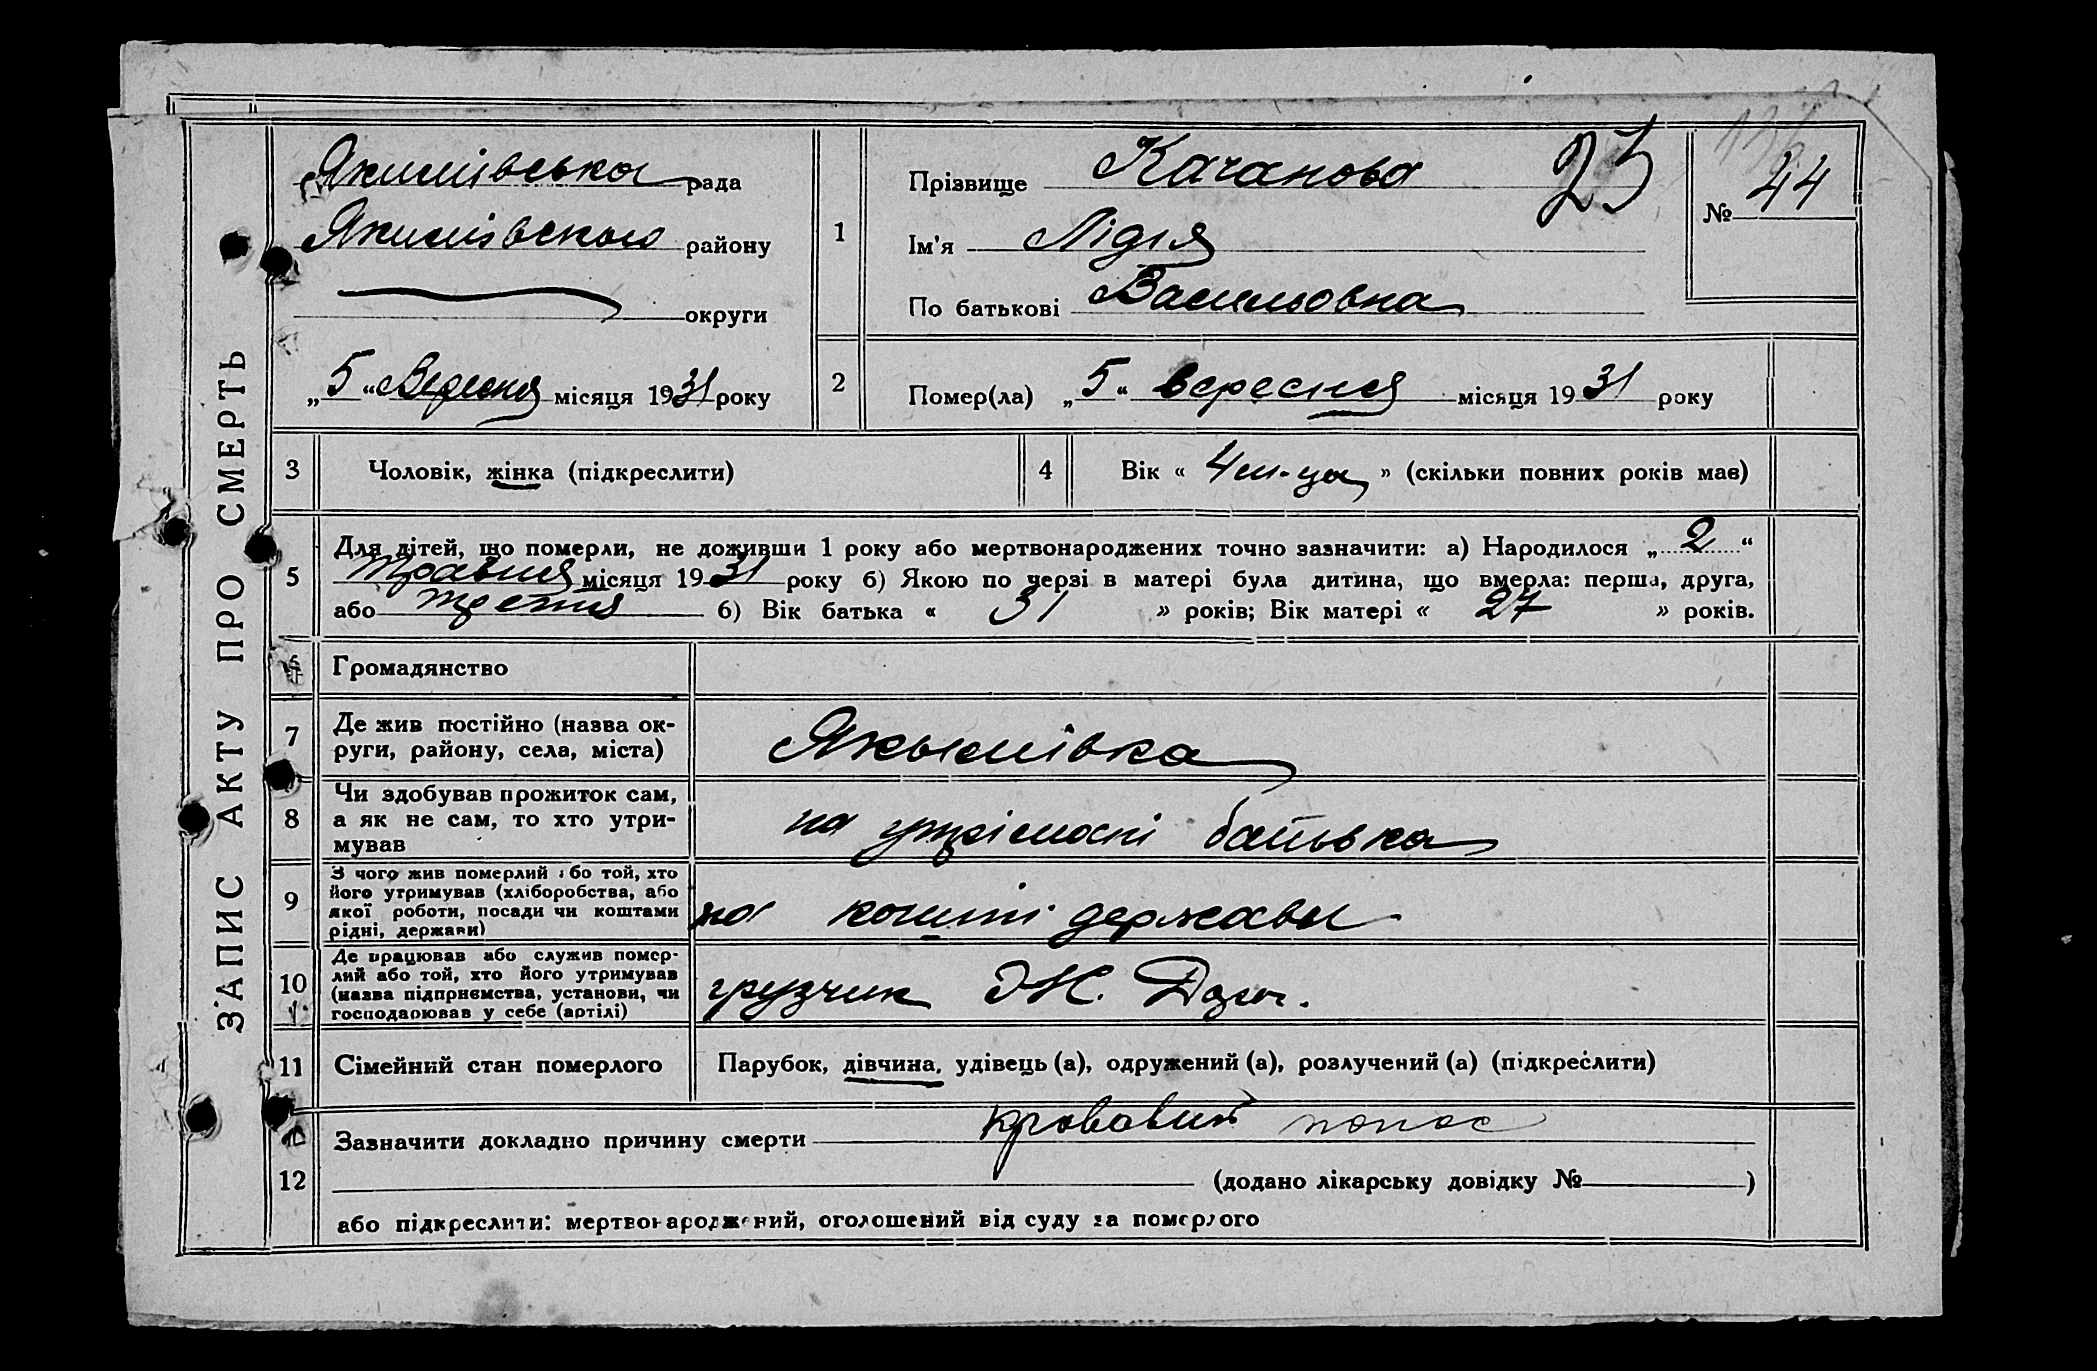 ЗАПИС АКТУ ПРО СМЕРТЬ
Якимівська рада
Якимівського району
округи
„5“ Вересня місяця 1931 року
1
Прізвище Качанова
25
№ 44
Ім'я Лідія
По батькові Васильовна
2
Помер(ла) „5“ вересня місяця 1931 року
3 Чоловік, жінка (підкреслити)
4 Вік « 4 м-ца » (скільки повних років мав)
5 Для дітей, що померли, не доживши 1 року або мертвонароджених точно зазначити: а) Народилося „2“
травня місяця 1931 року б) Якою по черзі в матері була дитина, що вмерла: перша, друга,
або третя б) Вік батька « 31 » років; Вік матері « 27 » років.
6 Громадянство
7 Де жив постійно (назва ок-
руги, району, села, міста)
Якымівка
8 Чи здобував прожиток сам,
а як не сам, то хто утри-
мував
на утріманні батька
9 З чого жив померлий або той, хто
його утримував (хліборобства, або
якої роботи, посади чи коштами
рідні, держави)
на кошти держави
10 Де працював або служив помер-
лий або той, хто його утримував
(назва підприємства, установи, чи
господарював у себе (артілі)
грузчик
11 Сімейний стан померлого
Парубок, дівчина, удівець (а), одружений (а), розлучений (а) (підкреслити)
12 Зазначити докладно причину смерти кровавий понос
(додано лікарську довідку № )
або підкреслити: мертвонароджений, оголошений від суду за померлого